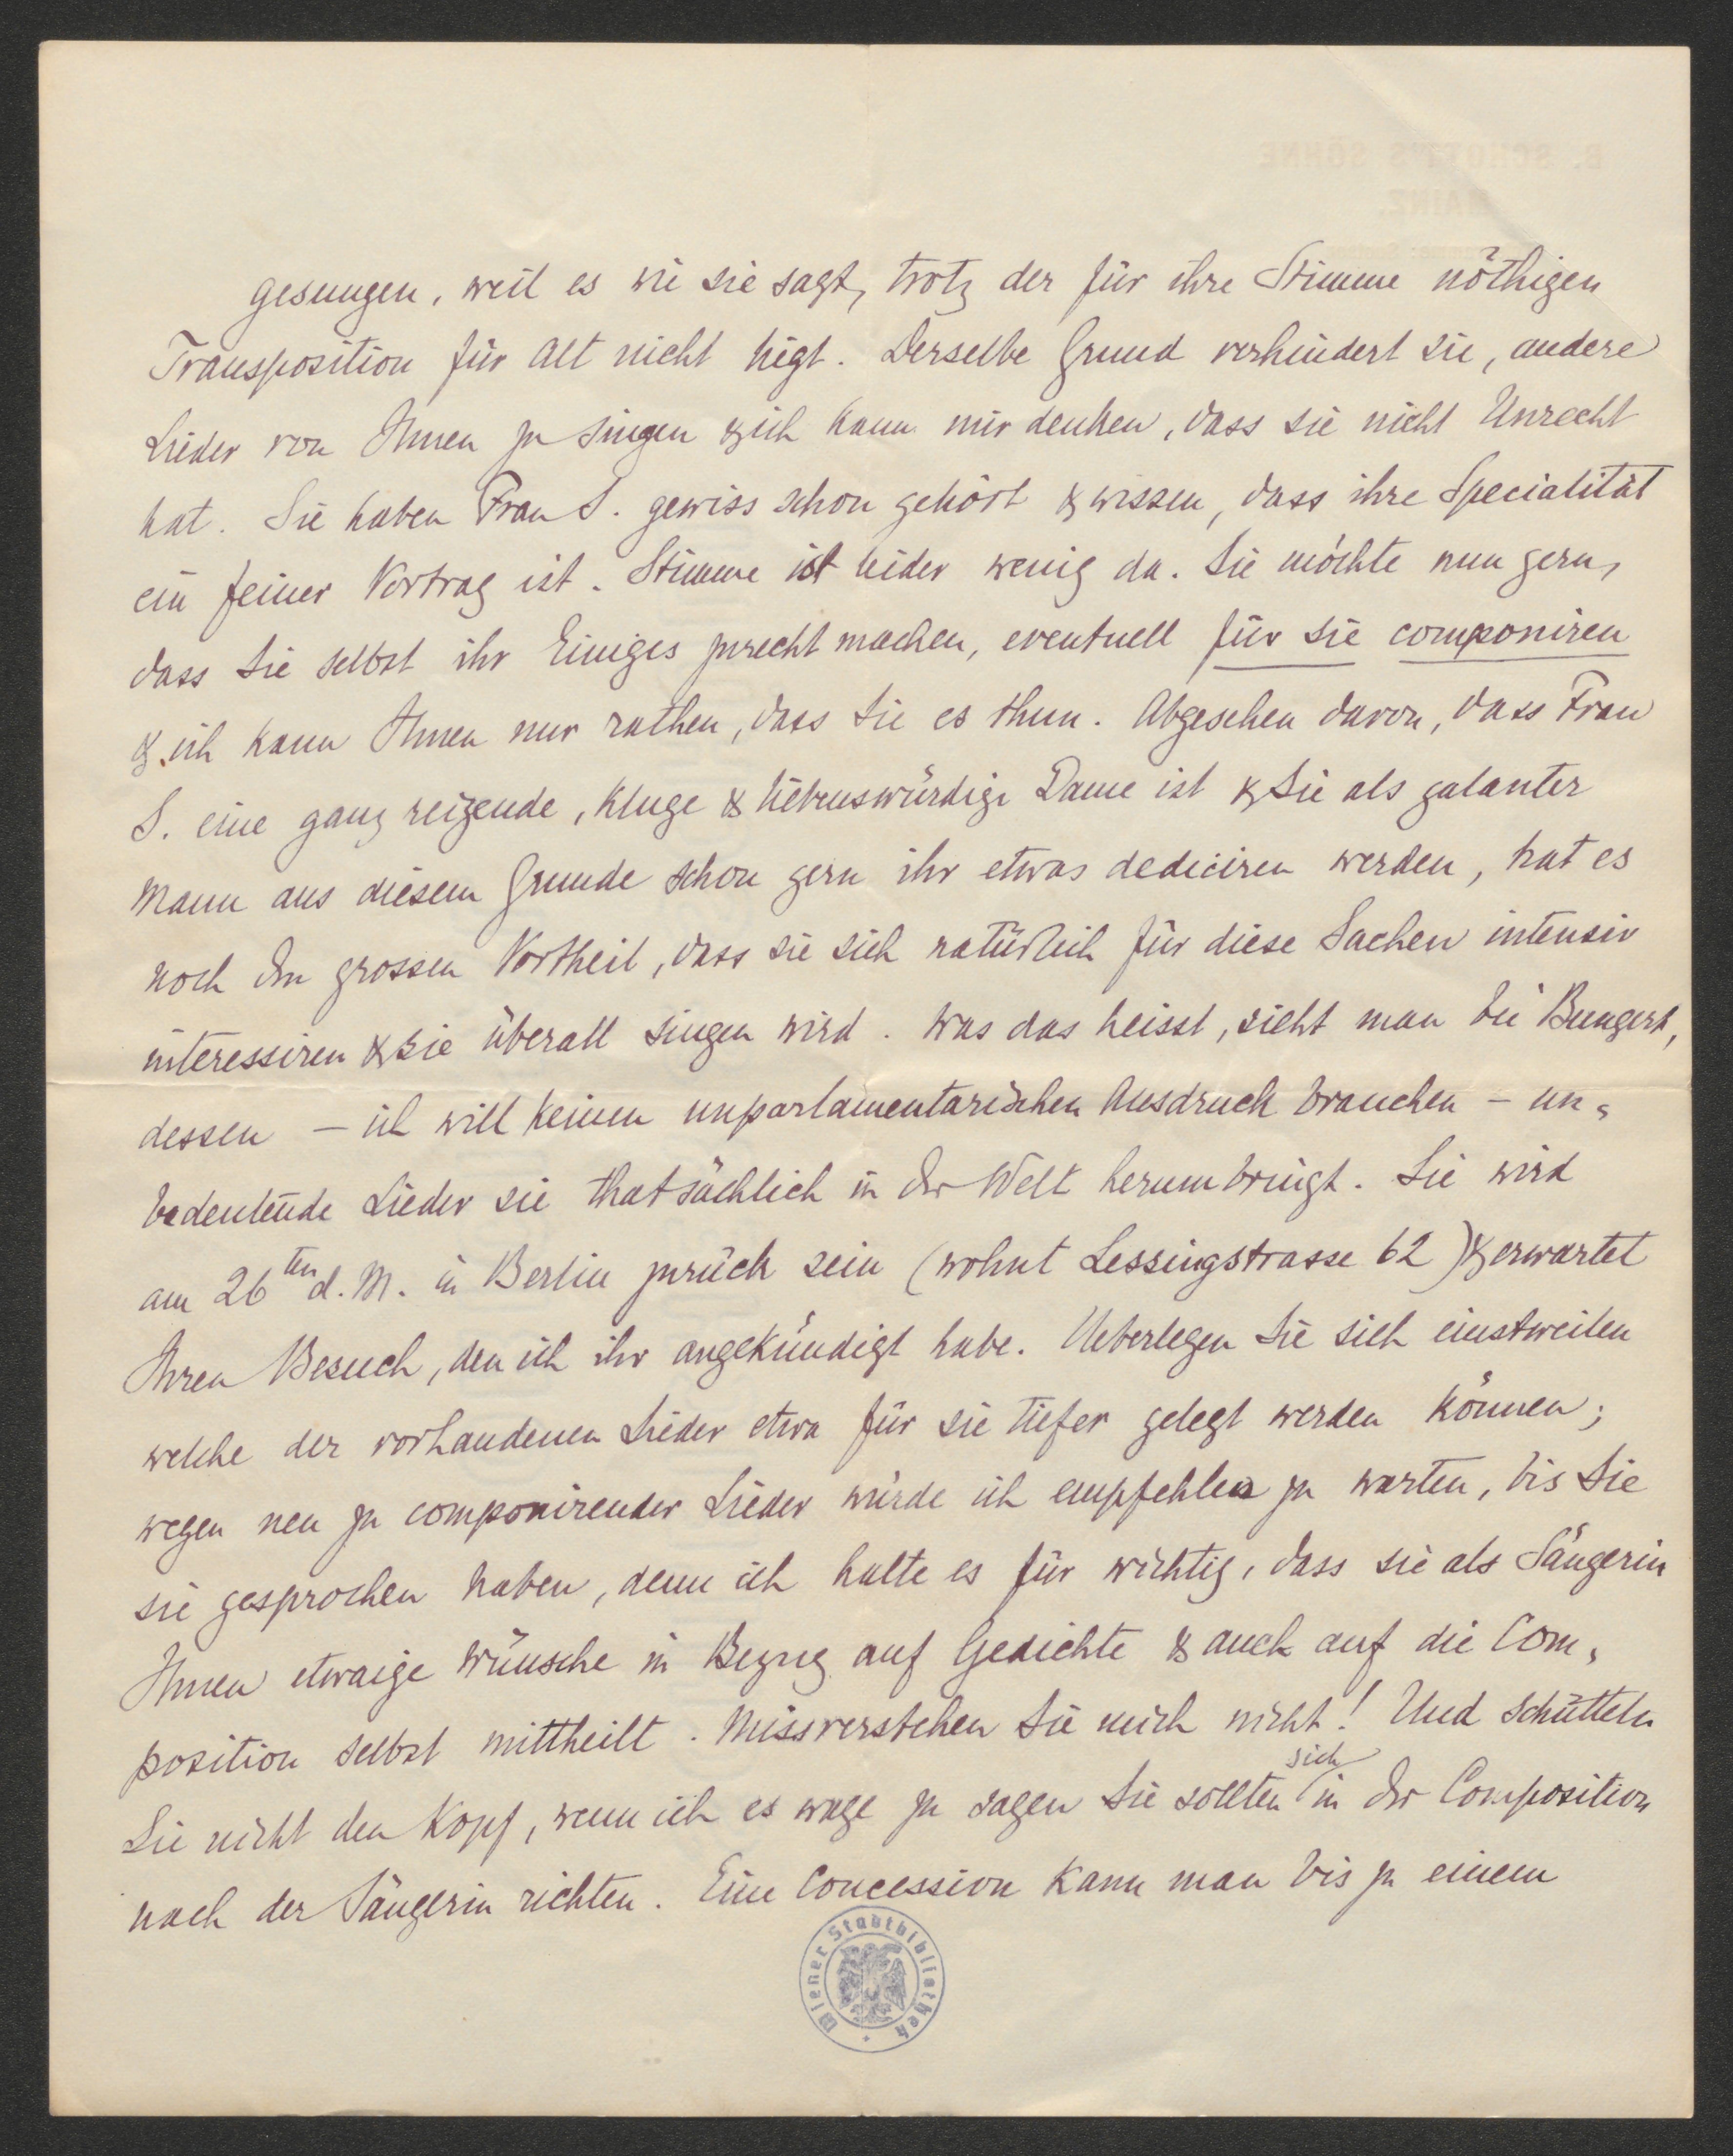 B. SCHOTT'S SÖHNE
MAINZ.
gesungen, weil es wie sie sagt, trotz der für ihre Stimme nöthigen
Transposition für Alt nicht liegt. Derselbe Grund verhindert sie, andere
Lieder von Ihnen zu singen & ich kann mir denken, dass sie nicht Unrecht
hat. Sie haben Frau S. gewiss schon gehört & wissen, dass ihre Specialität
ein feiner Vortrag ist. Stimme ist leider wenig da. Sie möchte nun gern,
dass Sie selbst ihr Einiges zurecht machen, eventuell für sie componiren
& ich kann Ihnen nur rathen, dass Sie es thun. Abgesehen davon, dass Frau
S. eine ganz reizende, kluge & liebenswürdige Dame ist & Sie als galanter
Mann aus diesem Grunde schon gern ihr etwas dediciren werden, hat es
noch den grossen Vortheil, dass sie sich natürlich für diese Sachen intensiv
interessiren & sie überall singen wird. Was das heisst, sieht man bei Bungert,
dessen – ich will keinen unparlamentarischen Ausdruck brauchen – un-
bedeutende Lieder sie thatsächlich in der Welt herumbringt. Sie wird
am 26ten d. M. in Berlin zurück sein (wohnt Lessingstrasse 62) & erwartet
Ihren Besuch, den ich ihr angekündigt habe. Ueberlegen Sie sich einstweilen
welche der vorhandenen Lieder etwa für sie tiefer gelegt werden können;
wegen neu zu componirender Lieder würde ich empfehlen zu warten, bis Sie
sie gesprochen haben, denn ich halte es für wichtig, dass sie als Sängerin
Ihnen etwaige Wünsche in Bezug auf Gedichte & auch auf die Com-
position selbst mittheilt. Missverstehen Sie mich nicht! Und schütteln
Sie nicht den Kopf, wenn ich es wage zu sagen Sie sollten sich in der Composition
nach der Sängerin richten. Eine Concession kann man bis zu einem
Wiener Stadtbibliothek